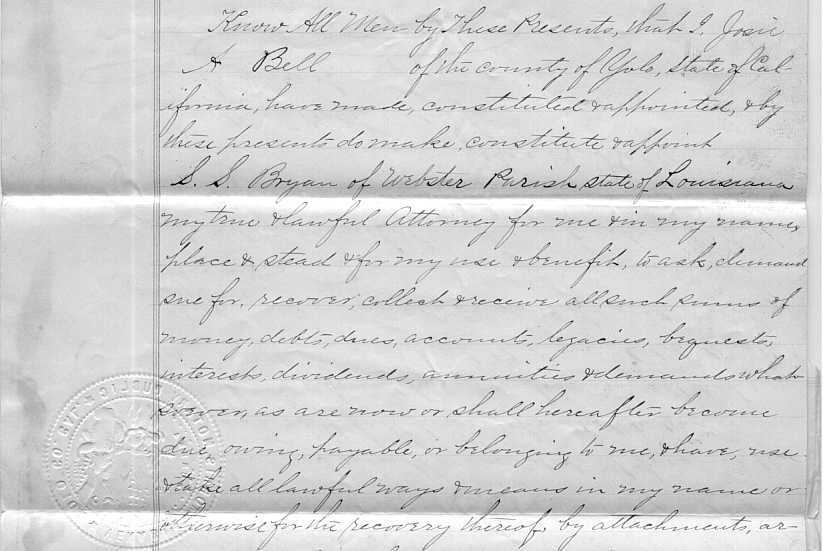 Know All Men by these Presents, that I, Josie
A Bell of the county of Yolo, State of Cal-
ifornia, have made, constituted & appointed, & by
these presents do make, constitute & appoint
S. S. Bryan of Webster Parish state of Louisiana
my true & lawful Attorney for me & in my name,
place & stead & for my use & benefit, to ask, demand
sue for, recover, collect & receive all such sums of
money, debts, dues, accounts, legacies, bequests,
interests, dividends, annuities & demands what-
soever, as are now or shall hereafter become
due, owing, payable, or belonging to me, & have, use
& take all lawful ways & means in my name or
otherwise for the recovery thereof, by attachments, ar-